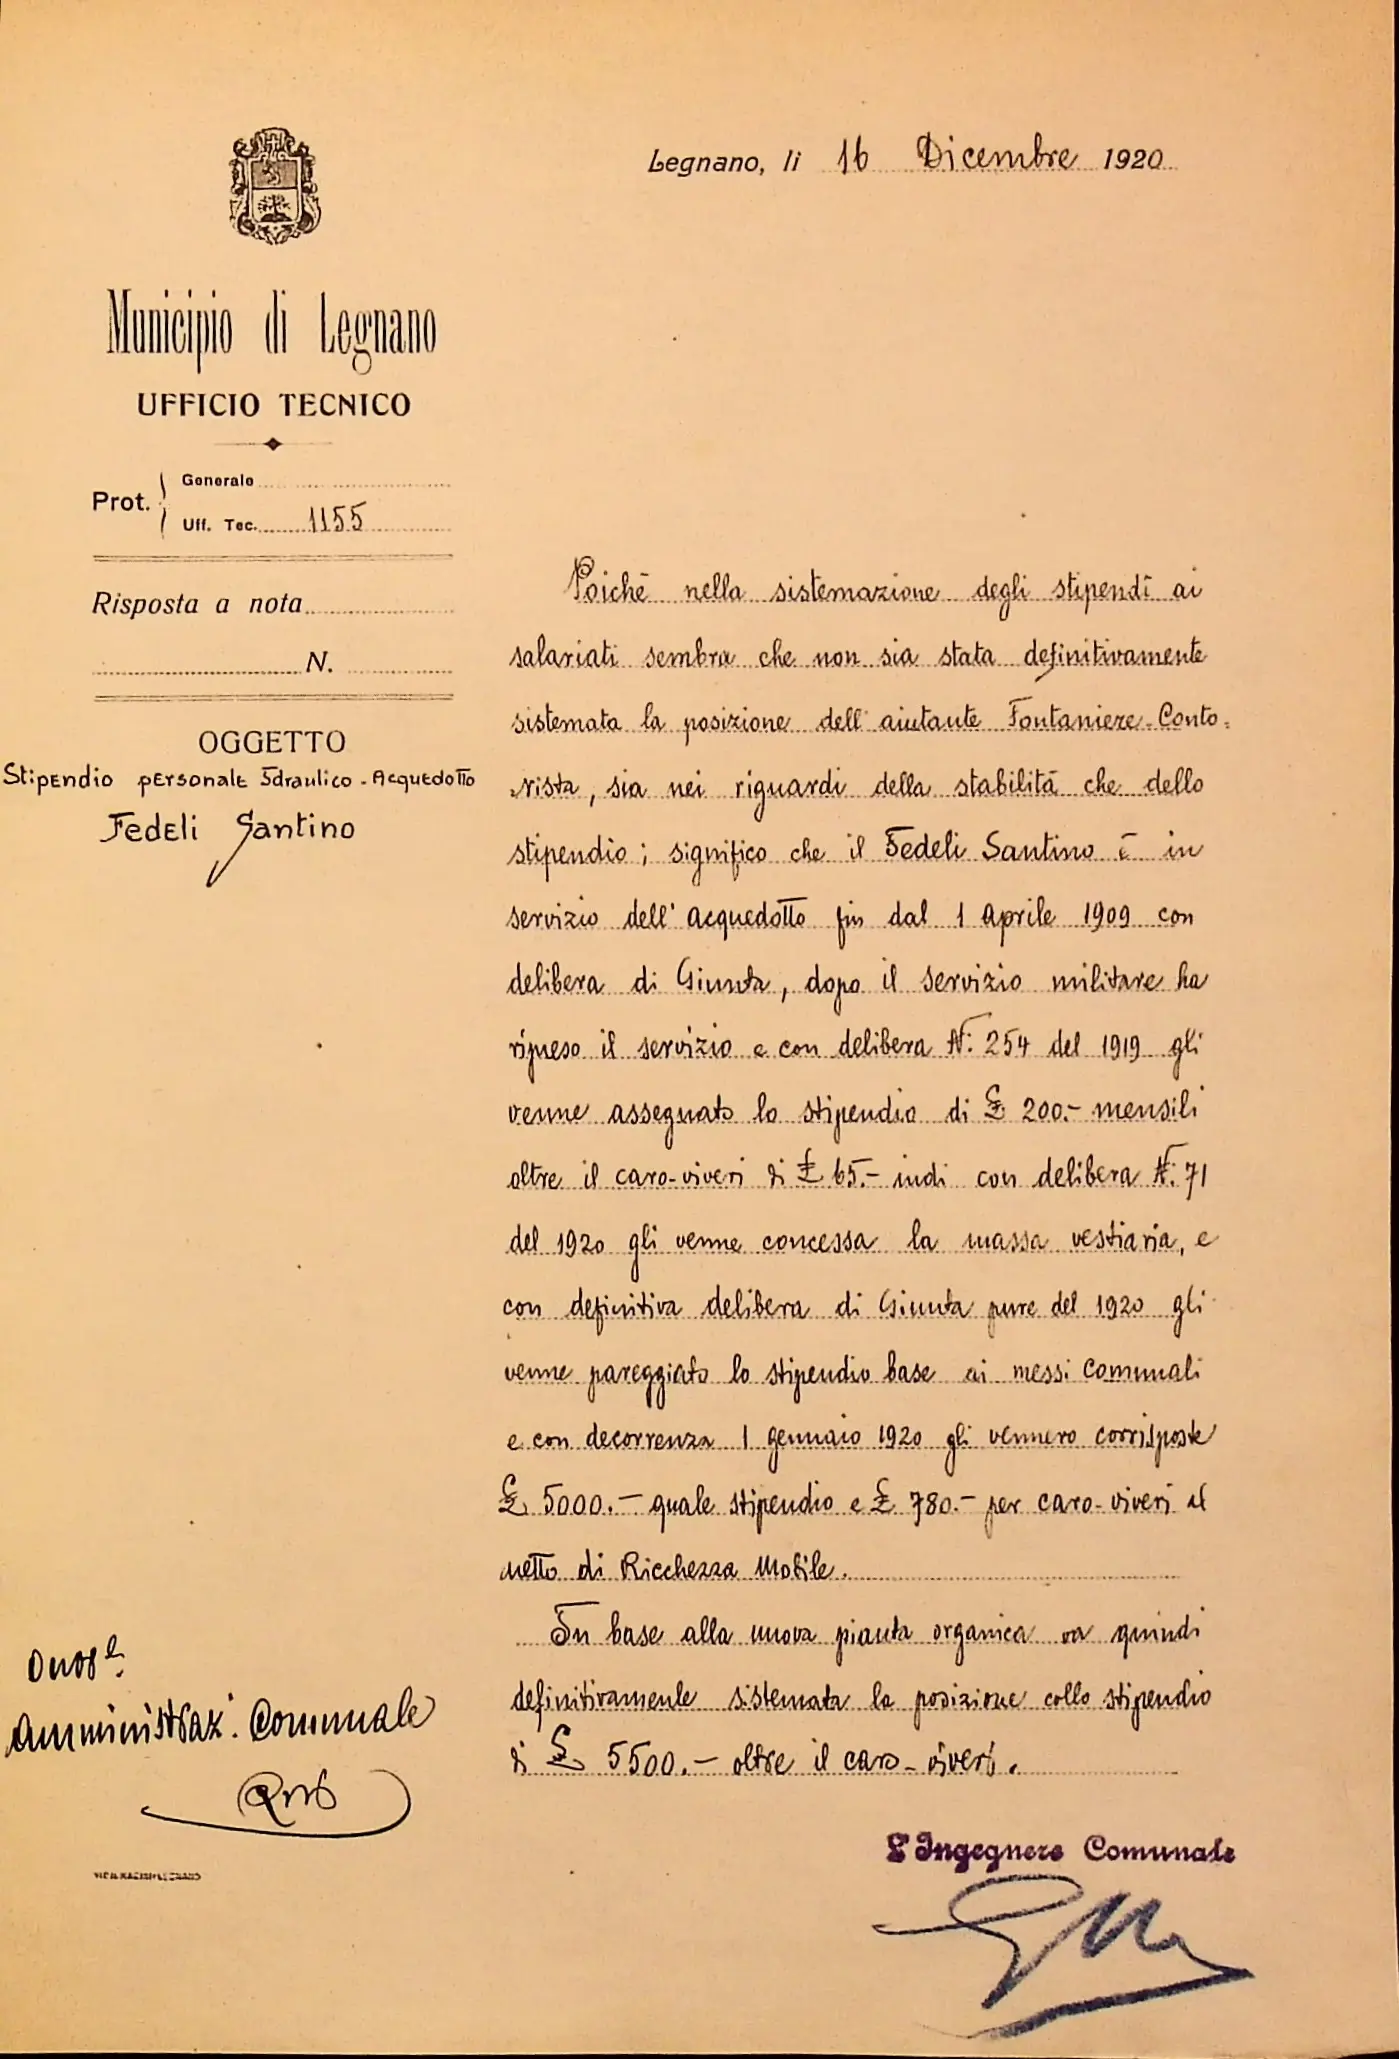 Legnano, li 16 Dicembre 1920
Municipio di Legnano
UFFICIO TECNICO
Prot.
Generale
Uff. Tec. 1155
Risposta a nota
N.
OGGETTO
Stipendio personale Idraulico - Acquedotto
Fedeli Santino
Poichè nella sistemazione degli stipendî ai
salariati sembra che non sia stata definitivamente
sistemata la posizione dell'aiutante Fontaniere-Conto=
rista, sia nei riguardi della stabilità che dello
stipendio; significo che il Fedeli Santino è in
servizio dell'acquedotto fin dal 1 Aprile 1909 con
delibera di Giunta, dopo il servizio militare ha
ripreso il servizio e con delibera N. 254 del 1919 gli
venne assegnato lo stipendio di £ 200.- mensili
oltre il caro-viveri di £ 65.- indi con delibera N. 71
del 1920 gli venne concessa la massa vestiaria, e
con definitiva delibera di Giunta pure del 1920 gli
venne pareggiato lo stipendio base ai messi Comunali
e con decorrenza 1 gennaio 1920 gli vennero corrisposte
£ 5000.- quale stipendio e £ 780.- per caro-viveri al
netto di Ricchezza Mobile.
In base alla nuova pianta organica va quindi
definitivamente sistemata la posizione collo stipendio
di £ 5500.- oltre il caro-viveri.
Amministraz. Comunale
L'Ingegnere Comunale